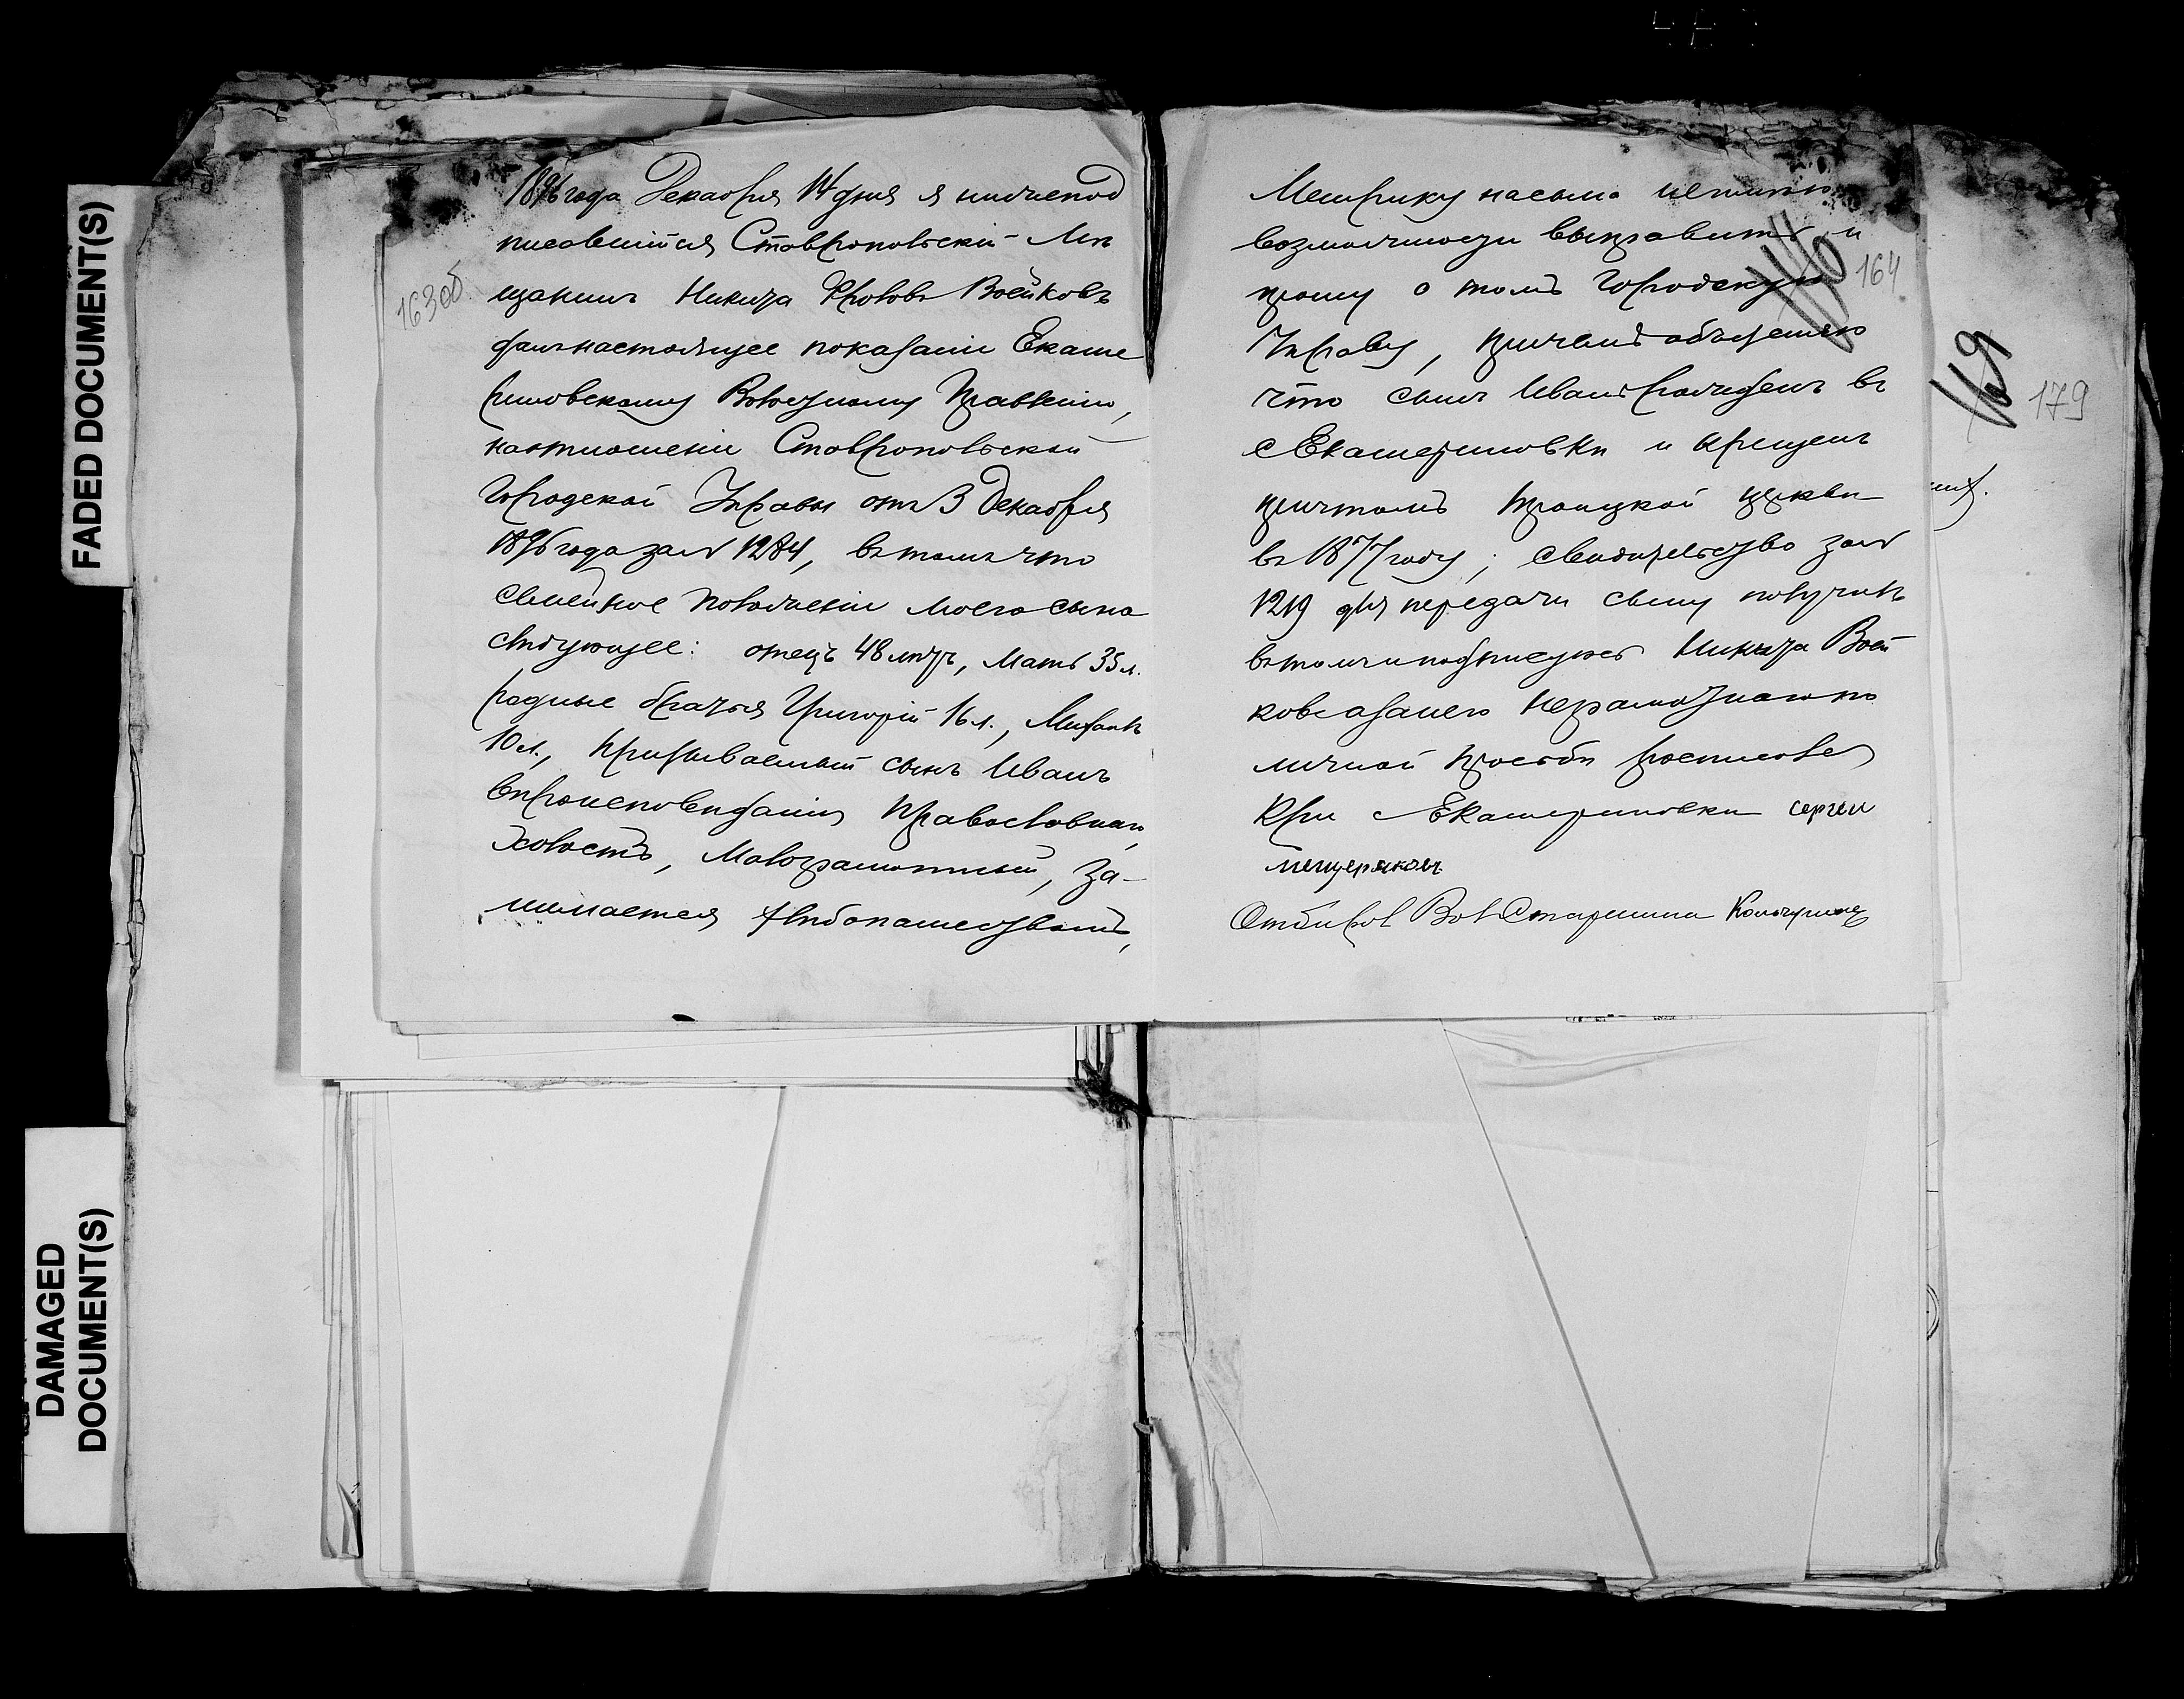 FADED DOCUMENT(S)
DAMAGED
DOCUMENT(S)
163об
1896 года Декабря 14 дня я нижепод
писавшійся Ставропольскій Мѣ
щанинъ Никита Фроловъ Воейковъ
далъ настоящее показаніе Екате
риновскому Волостному Правленію,
на отношеніе Ставропольской
Городской Управы отъ 3 Декабря
1896 года за № 1284, въ томъ что
семейное положеніе моего сына
слѣдующее: отецъ 48 лѣтъ, мать 35 л.
родные братья Григорій 16 л., Михаилъ
10 л., призываемый сынъ Иванъ
вѣроисповѣданія Православнаго,
холостъ, малограмотный, за-
нимается хлѣбопашествомъ,
164
Метрику на сына не имѣю
возможности выправить и
прошу о томъ Городскую
Управу, причемъ объясняю
что сынъ Иванъ рожденъ въ
с Екатериновки и крещенъ
причтомъ Троицкой церкви
въ 1877 году; свидѣтельство за №
1219 для передачи сыну получилъ
въ томъ и подписуюсь Никита Воей
ковъ а за него неграмотного по
личной прозьби росписолся
Кри с Екатериновки сергеи
мещеряковъ
Отбиралъ Вол Старшина
169
179